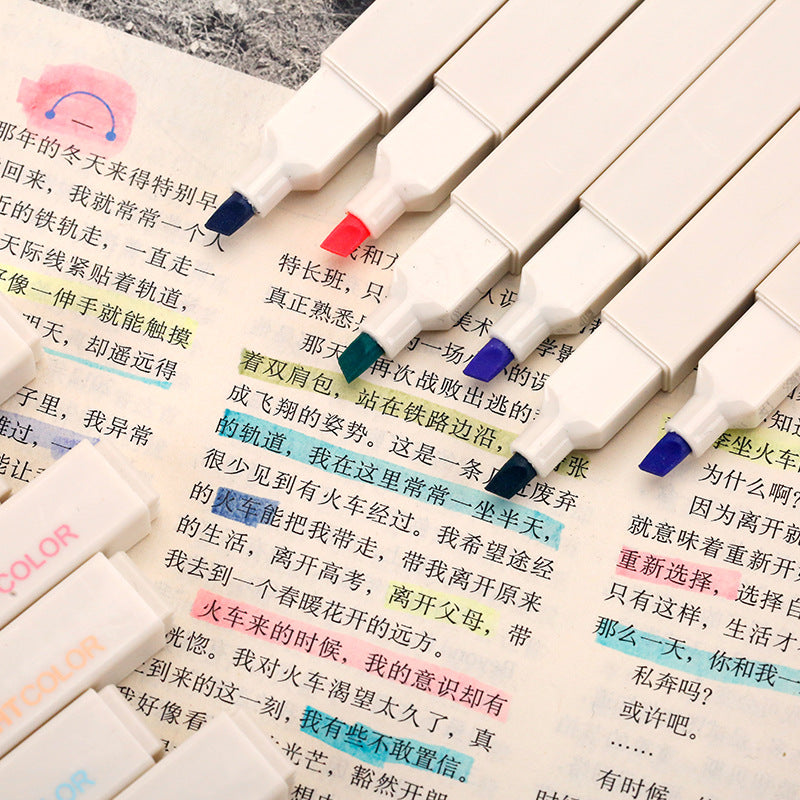 那年的冬天来得特别早
回来，我就常常一个人
近的铁轨走，一直走一
天际线紧贴着轨道，
好像一伸手就能触摸
明天，却遥远得
子里，我异常
难过，一
能让
特长班，只
真正熟悉
那天
着双肩包，站在铁路边沿，
成飞翔的姿势。这是一条
的轨道，我在这里常常一坐半天，
很少见到有火车经过。我希望途经
的火车能把我带走，带我离开原来
的生活，离开高考，离开父母，带
我去到一个春暖花开的远方。
火车来的时候，我的意识却有
光惚。我对火车渴望太久了，真
到来的这一刻，我有些不敢置信。
我好像看
光芒，豁然开朗
我和
认识
美术
的一场
学影
的识
再次战败出逃的
张
废弃
知道
坐火车
为什么啊？
因为离开就
就意味着重新开
重新选择，选择自
只有这样，生活才
那么一天，你和我一
私奔吗？
或许吧。
……
有时候
时候
COLOR
COLOR
OR